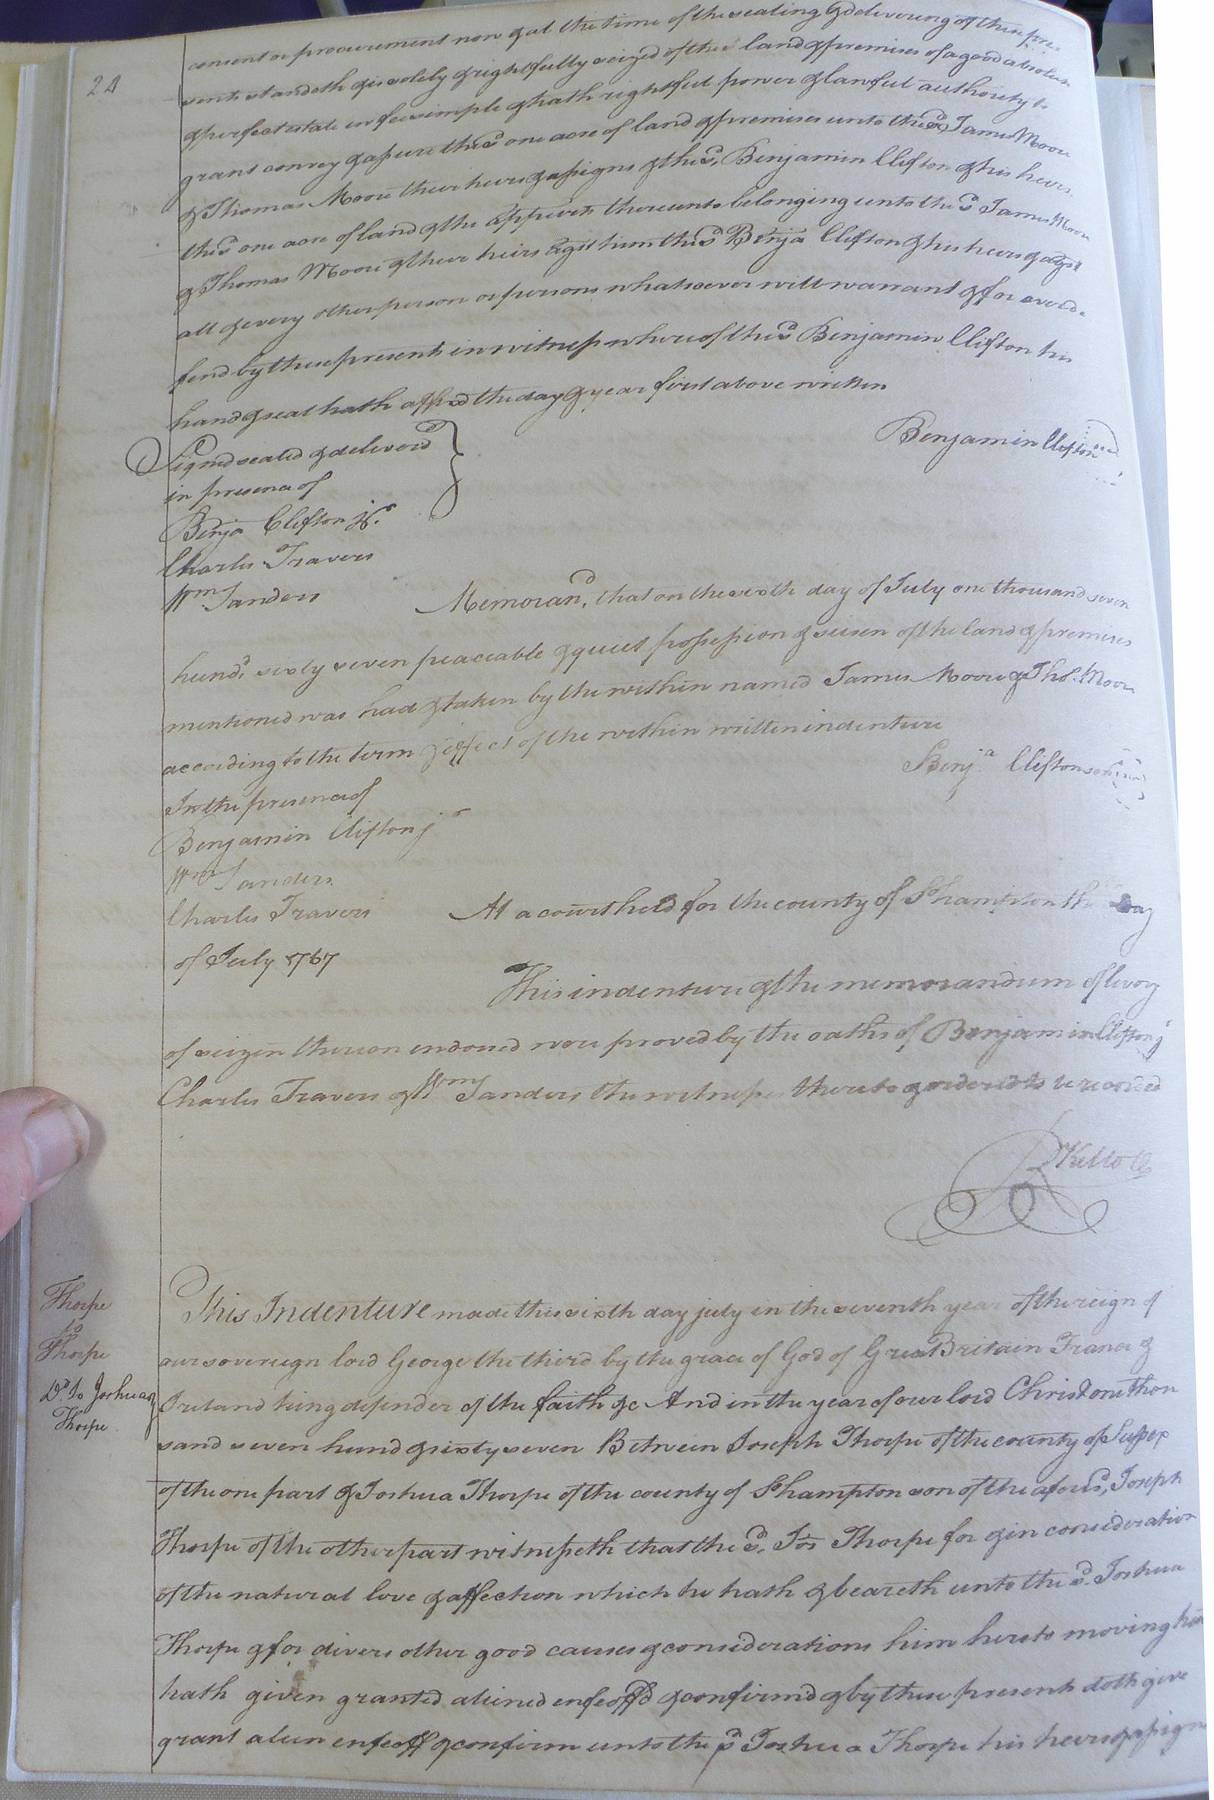 24
consent or procurement now & at the time of the sealing & delivering of these pre
sents standeth & is solely & rightfully seized of the land & premises of a good absolute
& perfect estate in fee simple & hath rightful power & lawful authority to
grant convey & assure the sd one acre of land & premises unto the sd James Moore
& Thomas Moore their heirs & assigns & the sd Benjamin Clifton & his heirs
the sd one acre of land & the appurts thereunto belonging unto the sd James Moore
& Thomas Moore & their heirs agst him the sd Benja Clifton & his heirs & agst
all & every other person or persons whatsoever will warrant & for ever de
fend by these presents in witness whereof the sd Benjamin Clifton his
hand & seal hath affixd the day & year first above written
Benjamin Clifton
Signd seald & deliverd
in presence of
Benja Clifton jr.
Charles Travers
Wm Sanders
Memorand, that on the sixth day of July one thousand seven
hundd sixty seven peaceable & quiet possession & seisen of the land & premises
mentioned was had & taken by the within named James Moore & Thos. Moore
according to the term & effect of the within written indenture
Benja Clifton senr
In the presence of
Benjamin Clifton jr
Wm Sanders
Charles Travers
At a court held for the county of Shampton the day
of July 1767
This indenture & the memorandum of livery
of seizen thereon endorsed were proved by the oaths of Benjamin Clifton jr
Charles Travers & Wm Sanders the witnesses thereto & orderd to be recorded
R Kello C
Thorpe
to
Thorpe
Dd to Joshua
Thorpe
This Indenture made this sixth day july in the seventh year of the reign of
our sovereign lord George the third by the grace of God of Great Britain France &
Ireland king defender of the faith &c And in the year of our lord Christ one thou
sand seven hund & sixty seven Between Joseph Thorpe of the county of Sussex
of the one part & Joshua Thorpe of the county of Shampton son of the aforesd, Joseph
Thorpe of the other part witnesseth that the sd. Jos Thorpe for & in consideration
of the natural love & affection which he hath & beareth unto the sd. Joshua
Thorpe & for divers other good causes & considerations him hereto moving
hath given granted aliened enfeoffd & confirmd & by these presents doth give
grant alien enfeoff & confirm unto the sd Joshua Thorpe his heirs & assigns